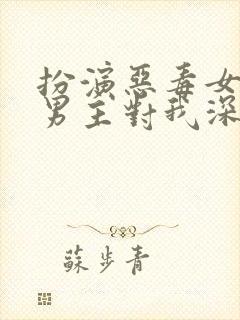 扮演惡毒女
男主對我深
蘇步青